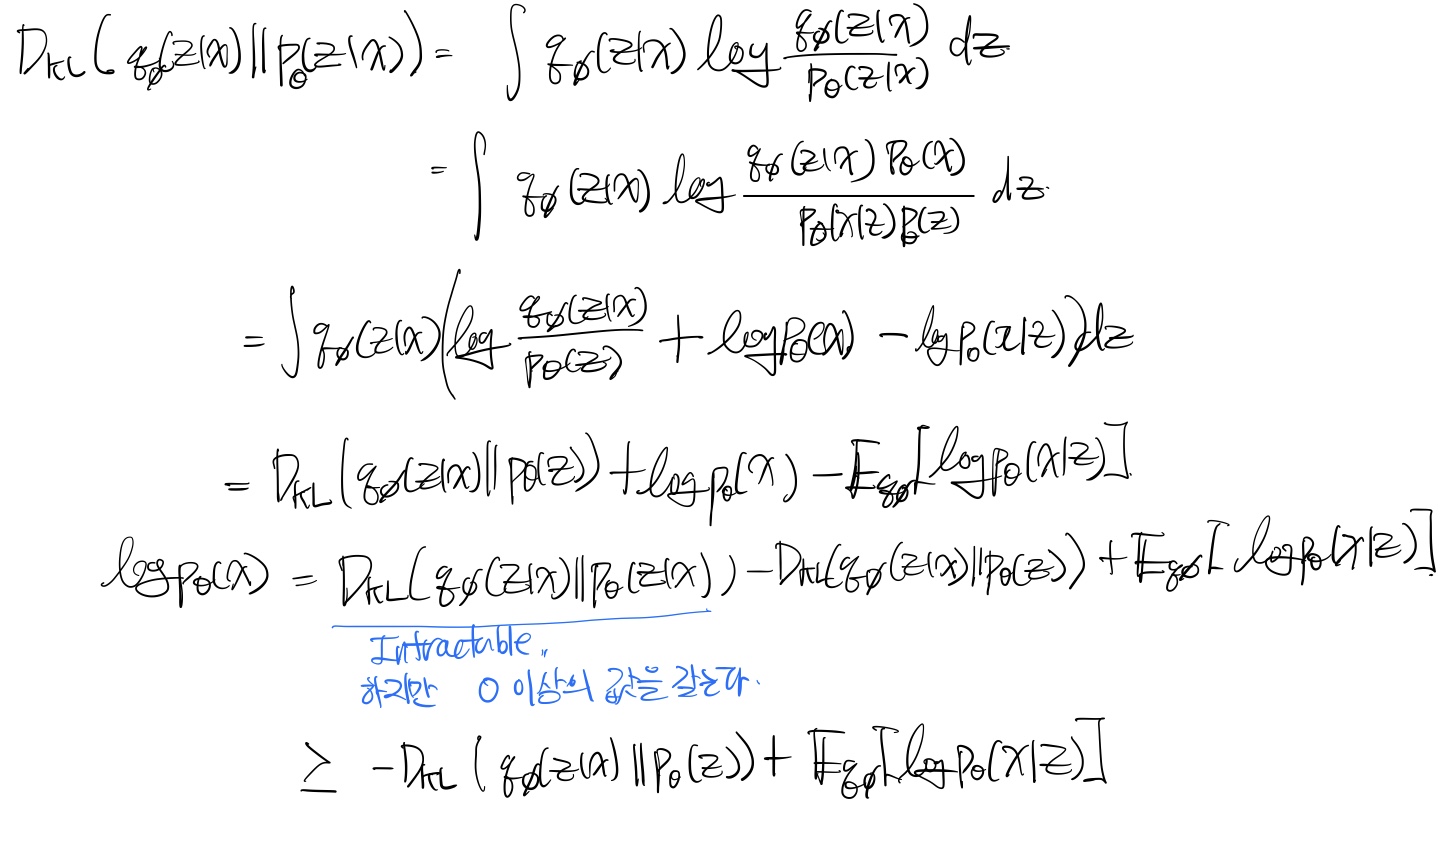 D_KL(q_φ(z|x)||p_θ(z|x)) = ∫ q_φ(z|x) log q_φ(z|x)/p_θ(z|x) dz
= ∫ q_φ(z|x) log q_φ(z|x)p_θ(x)/p_θ(x|z)p_θ(z) dz.
= ∫ q_φ(z|x)(log q_φ(z|x)/p_θ(z) + log p_θ(x) - log p_θ(x|z))dz
= D_KL(q_φ(z|x)||p_θ(z)) + log p_θ(x) - E_qφ[log p_θ(x|z)]
log p_θ(x) = D_KL(q_φ(z|x)||p_θ(z|x)) - D_KL(q_φ(z|x)||p_θ(z)) + E_qφ[log p_θ(x|z)]
Intractable,,
하지만 0 이상의 값을 갖는다.
≥ -D_KL(q_φ(z|x)||p_θ(z)) + E_qφ[log p_θ(x|z)]